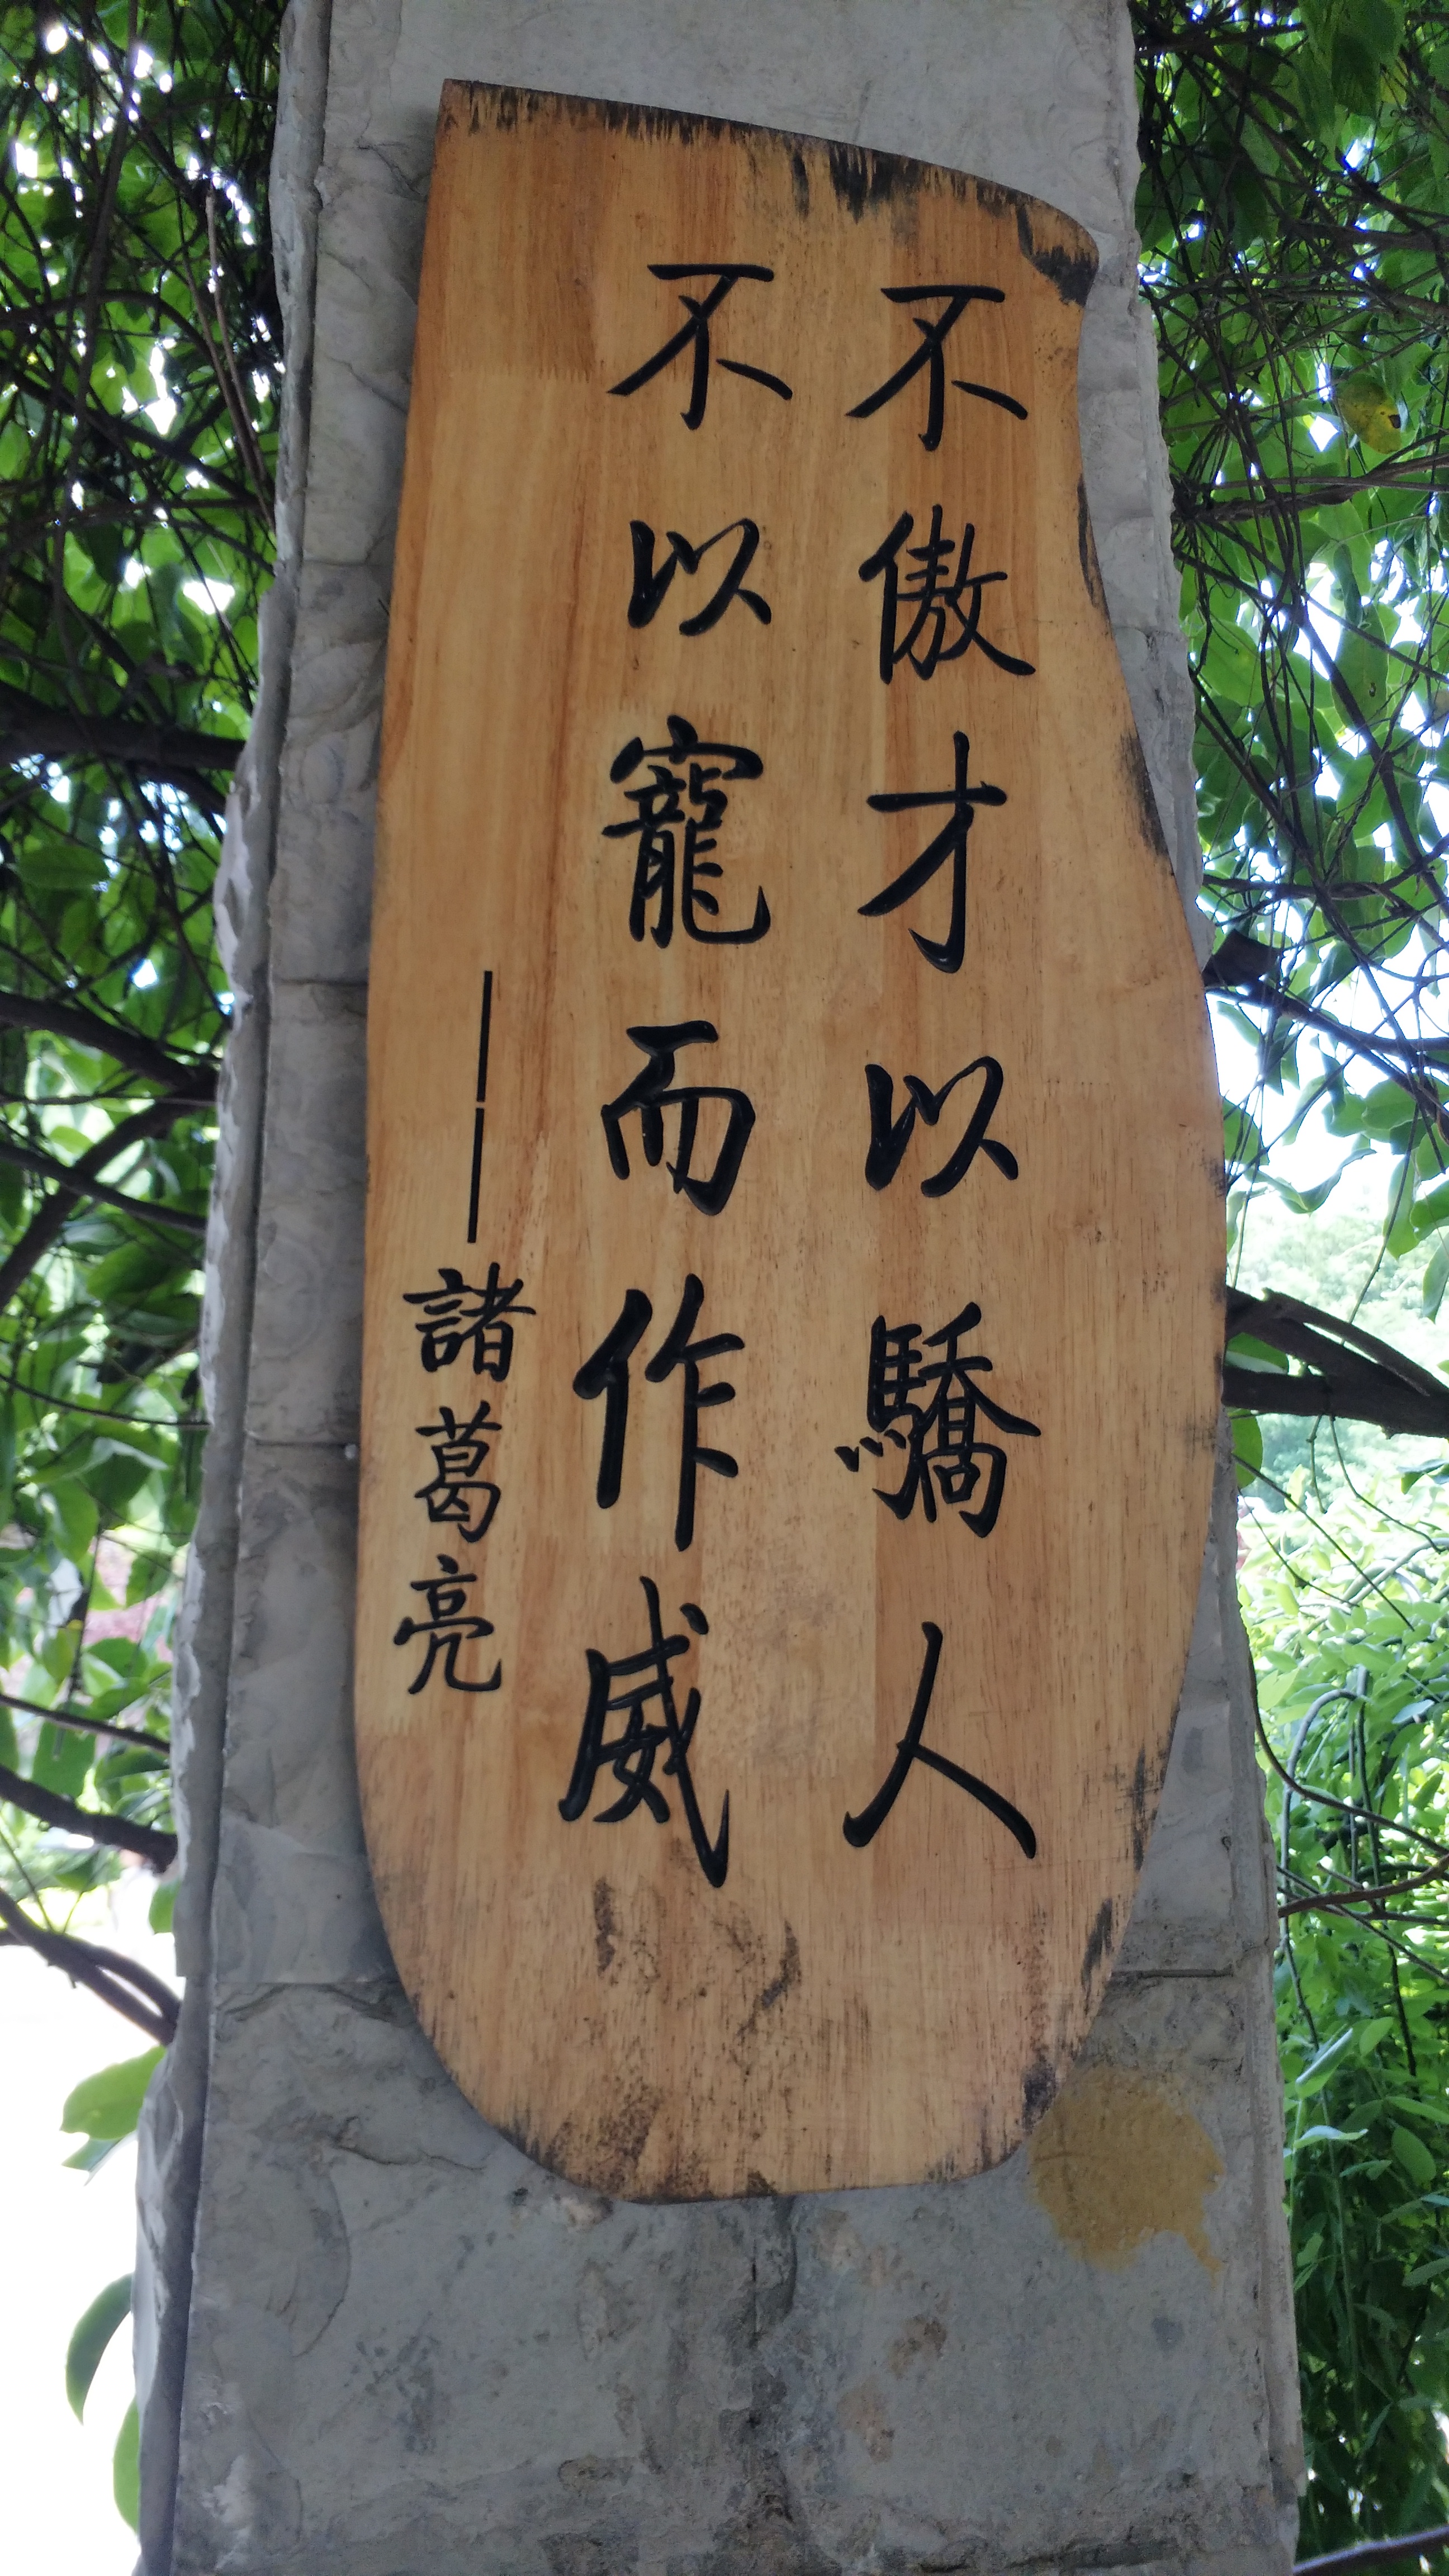 不傲才以驕人
不以寵而作威
——諸葛亮